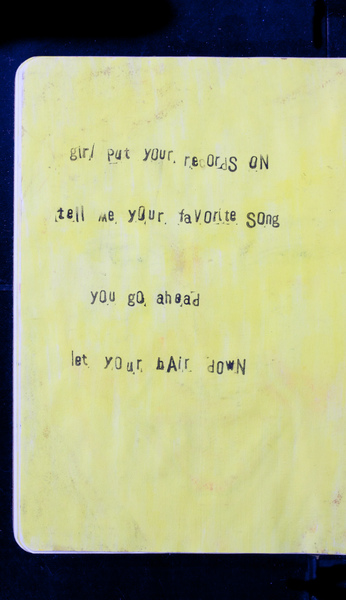 girl put your records ON
tell me yOur favOrite SOng
yOu gO ahead
let yOur hAir dOwN